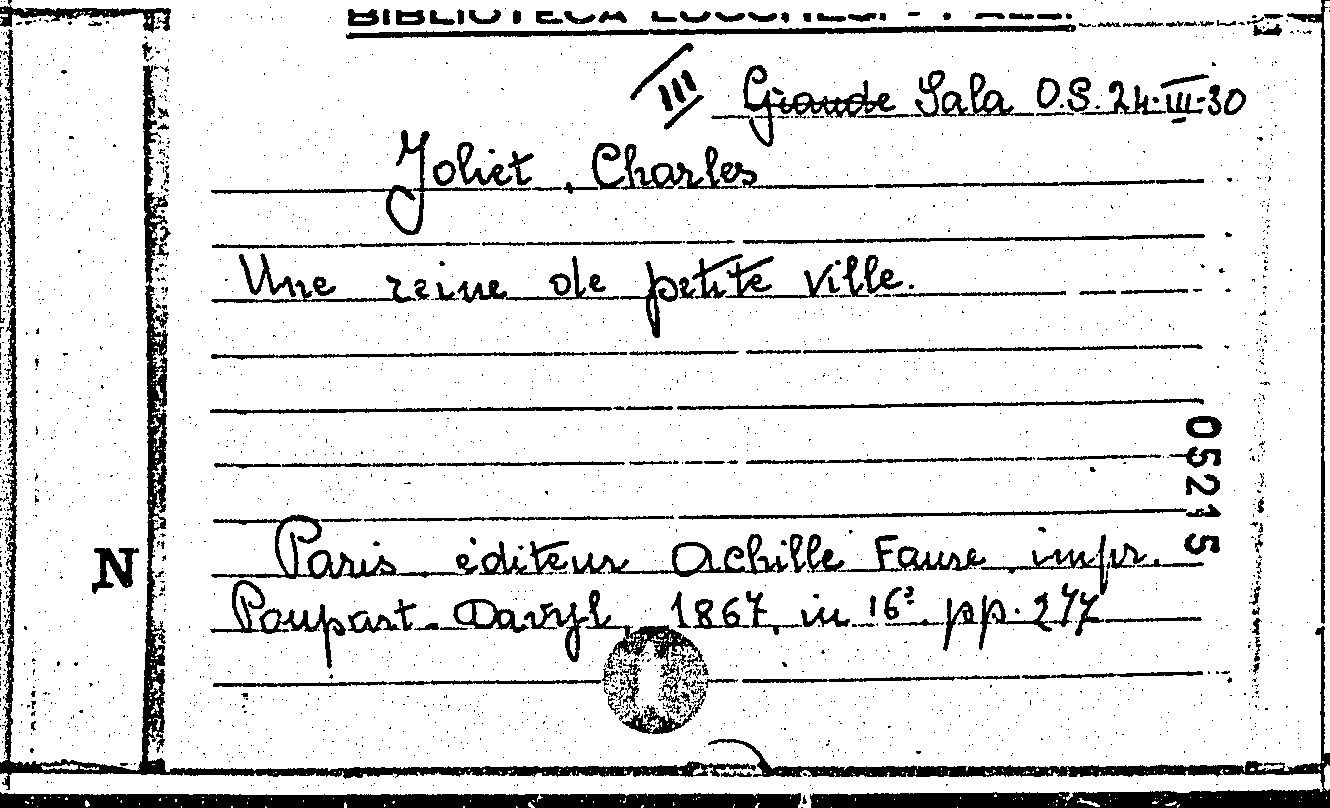 III Grande Sala O.S. 24-III-30
Joliet, Charles
Une reine de petite ville.
05215
Paris. éditeur Achille Faure, impr.
N
Poupart-Davyl, 1867, in 16º. pp. 277